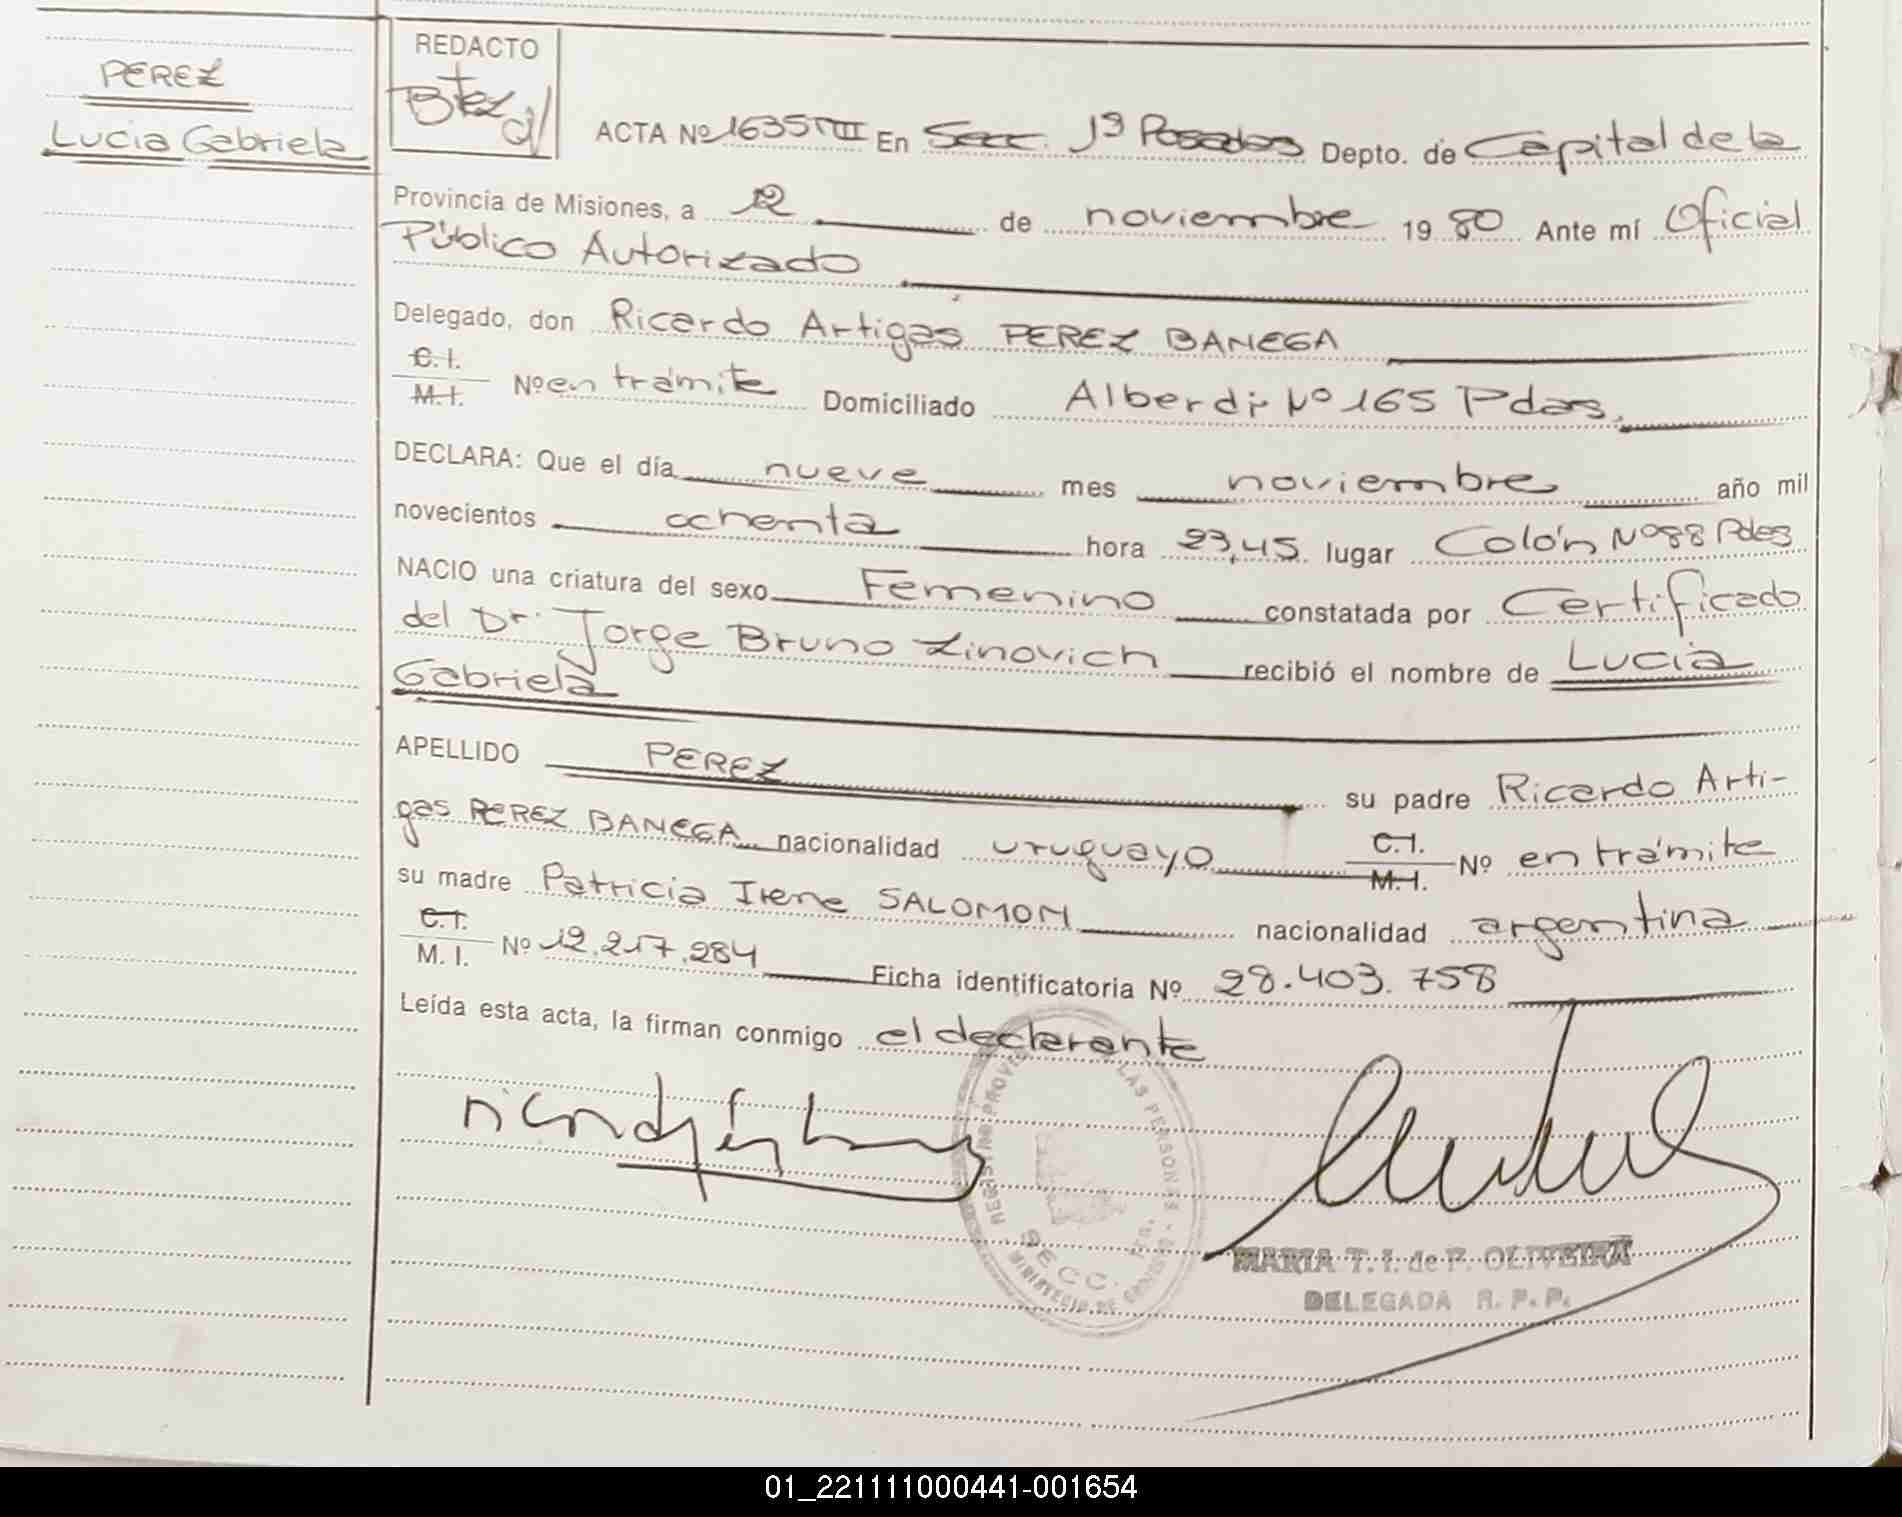 PEREZ
Lucia Gabriela
REDACTO
Btez
ACTA Nº 1635 TIII En Secc. 1ª Posadas Depto. de Capital de la
Provincia de Misiones, a 12 de noviembre 19 80 Ante mí Oficial
Público Autorizado
Delegado, don Ricardo Artigas PEREZ BANEGA
C.I.
M.I. Nº en trámite Domiciliado Alberdi Nº 165 Pdas.
DECLARA: Que el día nueve mes noviembre año mil
novecientos ochenta hora 23,45 lugar Colón Nº 88 Pdas
NACIO una criatura del sexo Femenino constatada por Certificado
del Dr. Jorge Bruno Zinovich recibió el nombre de Lucia
Gabriela
APELLIDO PEREZ su padre Ricardo Arti-
gas PEREZ BANEGA nacionalidad uruguayo C.I.
M.I. Nº en trámite
su madre Patricia Irene SALOMON nacionalidad argentina
C.I.
M. I. Nº 12.217.284 Ficha identificatoria Nº 28.403.758
Leída esta acta, la firman conmigo el declarante
REGISTRO PROVI LAS PERSONAS
SECC. 1ra.
MINISTERIO DE GOBIERNO
MARIA T. I. de F. OLIVEIRA
DELEGADA R. P. P.
01_221111000441-001654